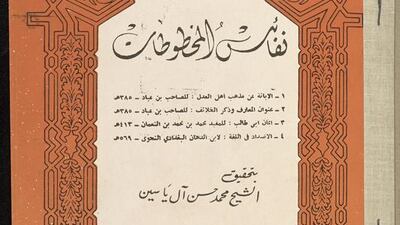 نفائس المخطوطات
١ ـ الابانة عن مذهب اهل العدل : للصاحب بن عباد ـ ٣٨٥هـ
٢ ـ عنوان المعارف وذكر الخلائف : للصاحب بن عباد ـ ٣٨٥هـ
٣ ـ ايمان ابي طالب : للمفيد محمد بن محمد بن النعمان ـ ٤١٣هـ
٤ ـ الاضداد في اللغة : لابن الدهان البغدادي النحوي ـ ٥٦٩هـ
بتحقيق
الشيخ محمد حسن آل ياسين